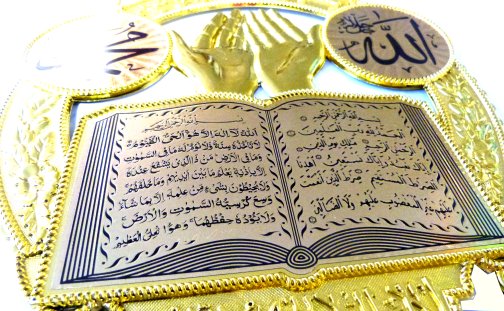 الله جل جلاله
محمد
بسم الله الرحمن الرحيم
الحمد لله رب العالمين
الرحمن الرحيم ملك يوم الدين
اياك نعبد واياك نستعين اهدنا
الصراط المستقيم صراط الذين انعمت
عليهم غير المغضوب عليهم ولا الضالين
بسم الله الرحمن الرحيم
الله لا اله الا هو الحي القيوم
لا تاخذه سنة ولا نوم له ما في السموات
وما في الارض من ذا الذي يشفع عنده
الا باذنه يعلم ما بين ايديهم وما خلفهم
ولا يحيطون بشيء من علمه الا بما شاء
وسع كرسيه السموات والارض
ولا يؤده حفظهما وهو العلي العظيم